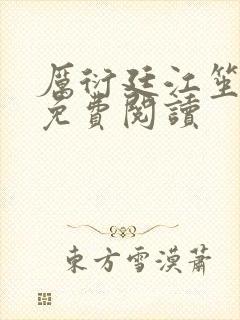 厲衍廷江笙
免費閱讀
東方雪漠蕭